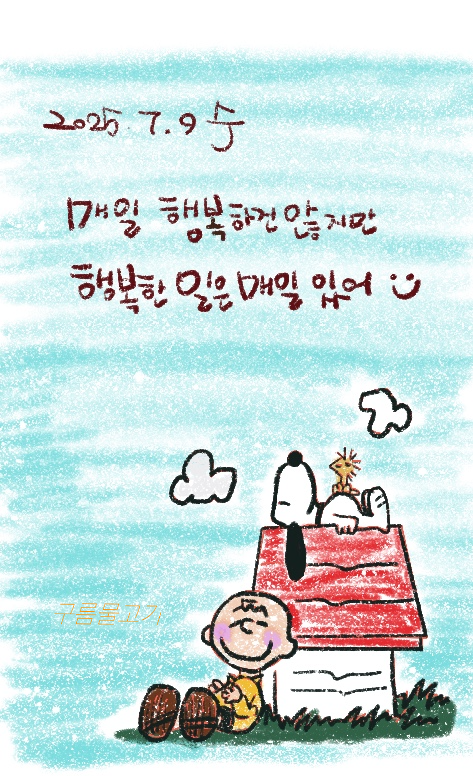 2025. 7. 9 수
매일 행복하진 않지만
행복한 일은 매일 있어
구름물고기